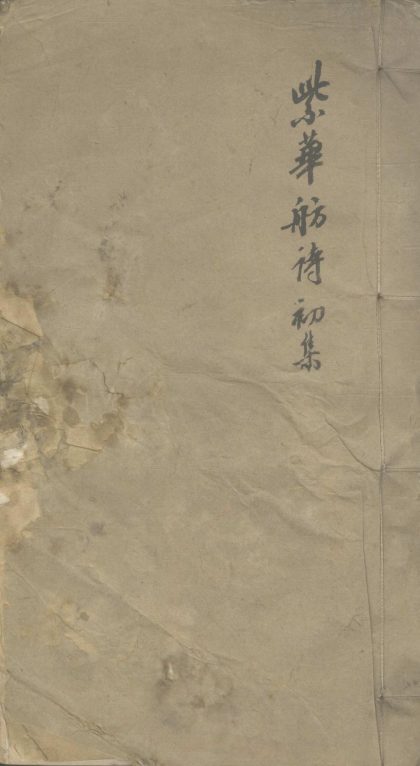 紫華舫詩初集